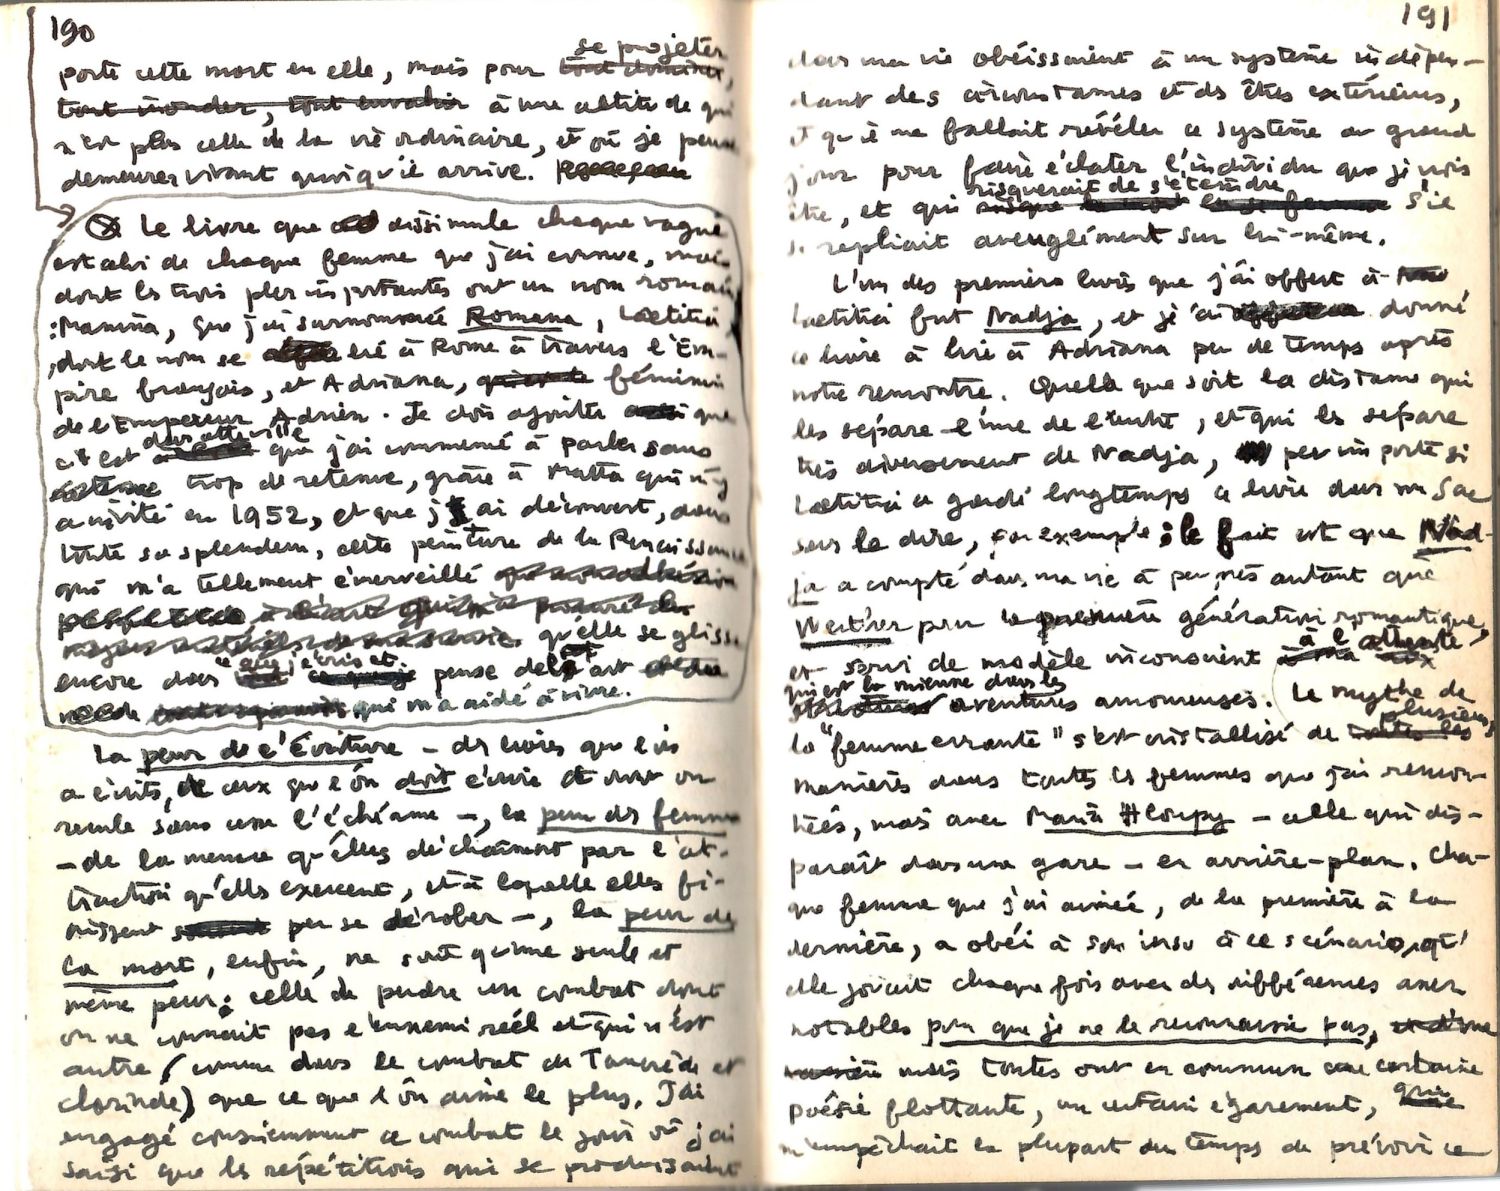 190
se projeter
porte cette mort en elle, mais pour tout dominer,
tout inonder, tout envahir à une altitude qui
n'est plus celle de la vie ordinaire, et où je peux
demeurer vivant quoiqu'il arrive.
Le livre que dissimule chaque vague
est celui de chaque femme que j'ai connue, mais
dont les trois plus importantes ont un nom romain
: Manina, que j'ai surnommée Romana, Laetitia,
dont le nom se lié à Rome à travers l'Em-
pire français, et Adriana, féminin
de l'Empereur Adrien. Je dois ajouter que
dans cette ville
c'est que j'ai commencé à parler sans
trop de retenue, grâce à Matta qui m'y
a invité en 1952, et que j'ai découvert, dans
toute sa splendeur, cette peinture de la Renaissance
qui m'a tellement émerveillé
qu'elle se glisse
ce que j'écris et
encore dans pense de l'art
de qui m'a aidé à vivre.
La peur de l'Écriture – des livres que l'on
a écrits, de ceux que l'on doit écrire et dont on
recule sans cesse l'échéance –, la peur des femmes
– de la menace qu'elles déchaînent par l'at-
traction qu'elles exercent, et à laquelle elles fi-
nissent par se dérober –, la peur de
la mort, enfin, ne sont qu'une seule et
même peur : celle de perdre un combat dont
on ne connait pas l'ennemi réel et qui n'est
autre (comme dans le combat de Tancrède et
Clorinde) que ce que l'on aime le plus. J'ai
engagé consciemment ce combat le jour où j'ai
saisi que les répétitions qui se produisaient
191
dans ma vie obéissaient à un système indépen-
dant des circonstances et des êtres extérieurs,
et qu'il me fallait révéler ce système au grand
jour pour faire éclater l'individu que je vois
risquerait de s'éteindre
être, et qui s'il
se repliait aveuglément sur lui-même.
L'un des premiers livres que j'ai offert à
Laetitia fut Nadja, et j'ai donné
ce livre à lire à Adriana peu de temps après
notre rencontre. Quelle que soit la distance qui
les sépare l'une de l'autre, et qui les sépare
très diversement de Nadja, peu importe si
Laetitia a gardé longtemps ce livre dans son sac
sans le dire, par exemple : le fait est que Nad-
ja a compté dans ma vie à peu près autant que
Werther pour la première génération romantique,
et servi de modèle inconscient à l'attente
qui est la mienne dans les
aventures amoureuses. Le mythe de
plusieurs
la "femme errante" s'est cristallisé de toutes les
manières dans toutes les femmes que j'ai rencon-
trées, mais avec Maria – celle qui dis-
paraît dans une gare – en arrière-plan. Cha-
que femme que j'ai aimée, de la première à la
dernière, a obéi à son insu à ce scénario, qu'
elle jouait chaque fois avec des différences assez
notables pour que je ne le reconnaisse pas, et d'une
manière mais toutes ont en commun une certaine
poésie flottante, un certain égarement, qui
m'empêchait la plupart du temps de prévoir ce